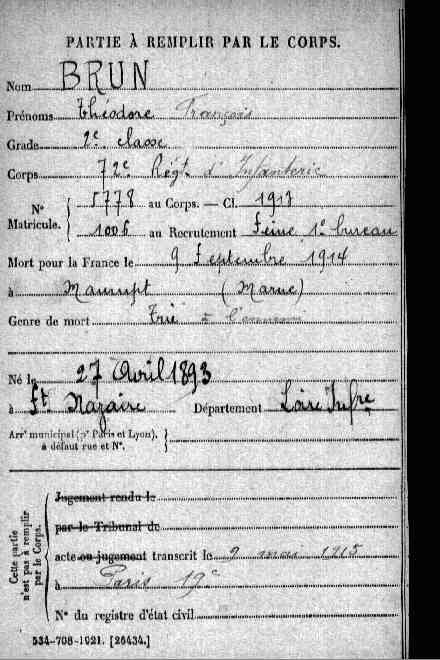 PARTIE À REMPLIR PAR LE CORPS.
Nom BRUN
Prénoms Théodore François
Grade 2e classe
Corps 72e Régt d'Infanterie
N° Matricule. { 5778 au Corps. — Cl. 1913
1006 au Recrutement Seine 1er bureau
Mort pour la France le 9 Septembre 1914
à Maurupt (Marne)
Genre de mort Tué à l'ennemi
Né le 27 Avril 1893
à St Nazaire Département Loire Infre
Arrt municipal (pr Paris et Lyon), à défaut rue et N°. }
Cette partie n'est pas à remplir par le Corps.
Jugement rendu le
par le Tribunal de
acte ou jugement transcrit le 9 mai 1915
à Paris 19e
N° du registre d'état civil
534-708-1921. [26434.]